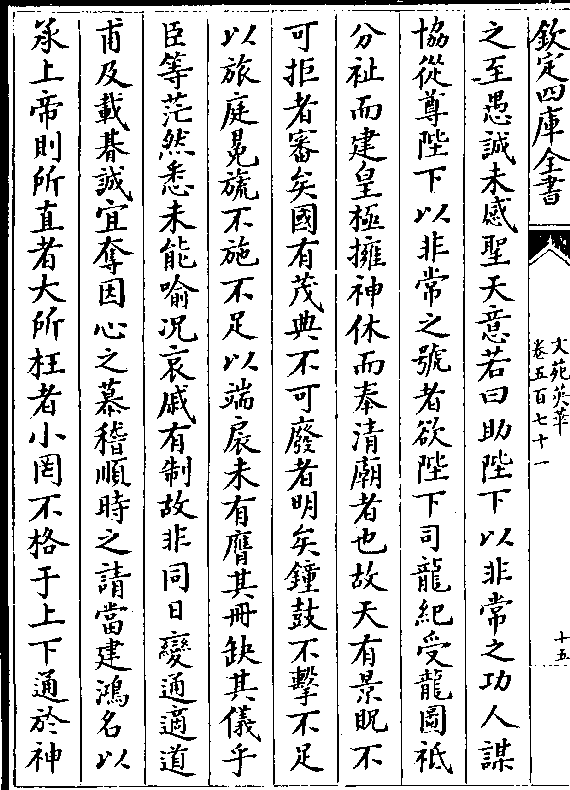 欽定四庫全書
文苑英華
卷五百七十一
十五
之至愚誠未感聖天意若曰助陛下以非常之功人謀
協從尊陛下以非常之號者欲陛下司龍紀受龍圖祗
分祉而建皇極擁神休而奉清廟者也故天有景貺不
可拒者審矣國有茂典不可廢者明矣鐘鼓不擊不足
以旅庭冕旒不施不足以端扆未有膺其冊缺其儀乎
臣等茫然悉未能喻况哀戚有制故非同日變通適道
甫及載朞誠宜奪因心之慕稽順時之請當建鴻名以
承上帝則所直者大所枉者小罔不格于上下通於神